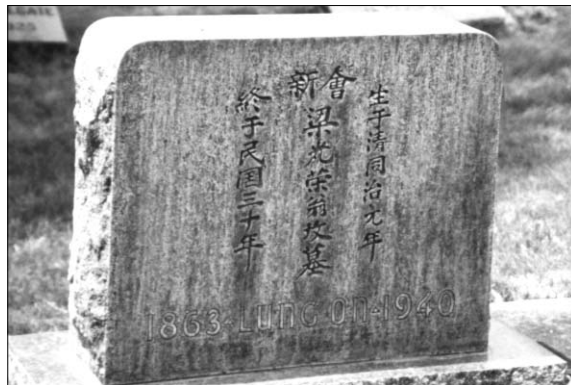 生于清同治元年
新會
梁光荣翁坟墓
終于民国三十年
1863-LUNG ON-1940